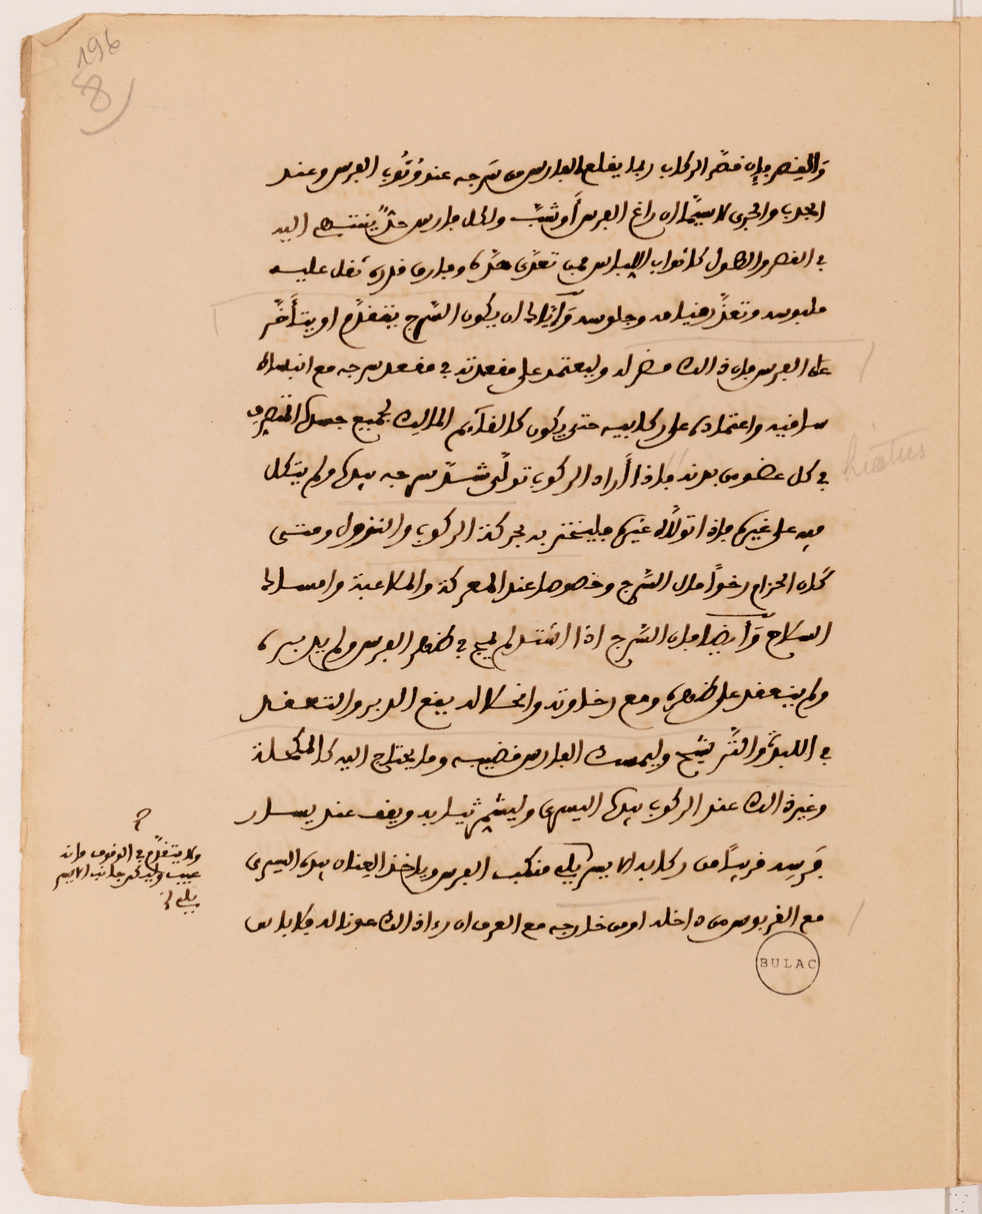 196
8
والقصر فإن قصر الركاب ربما يقلع الفارس من سرجه عند وُثُوب الفرس وعند
الجذب والجرى لا سيّما ان راغ الفرس أو شبّ ولكل فارس حدٌّ ينتهى اليه
فى القصر والطول كاثواب اللباس فمن تعدّى حدّه وفارق قدره ثقل عليه
ملبوسه وتعذّر قيامه وجلوسه وَايّاك ان يكون السّرج يتقدّم او يتأَخّر
على الفرس فان ذالك مضر له وليعتمد على مقعدته فى مقعد سرجه مع انبساط
ساقيه واعتماده على ركابيه حتى يكون كالقآيم المالك لجميع جسده المتصرف
فى كل عضو من بدنه فاذا أراد الركوب تولّى شدّ سرجه بيده ولم يتكل
hiatus
فيه على غيره فاذا تولّاه غيره فليختبره بحركة الركوب والنزول ومتى
كان الحزام رخوًا مال السّرج وخصوصا عند المعركة والملاعبة وامساك
السلاح وَأيضا فان السّرج اذا اشتد لم يمج فى ظهر الفرس ولم يدبره
ولم ينعقد على ظهره ومع رخاوته وانحلاله يقع الدبر والتعقد
فى اللبدة والتّرشيح وليمسك الفارس قضيبه وما يحتاج اليه كالمكحلة
وغير ذالك عند الركوب بيده اليسرى وليشمّر ثيابه ويقف عند يسار
فَرسه قريبًا من ركابه الايسر يلى منكب الفرس وياخذ العِنان بيده اليسرى
ولا يتقدّم فى الوقوف فانه
عيب وليكن جانبه الايسر
يلى
مع القربوص من داخله او من خارجه مع العرف ان راد ذالك عونا له فلا باس
BULAC